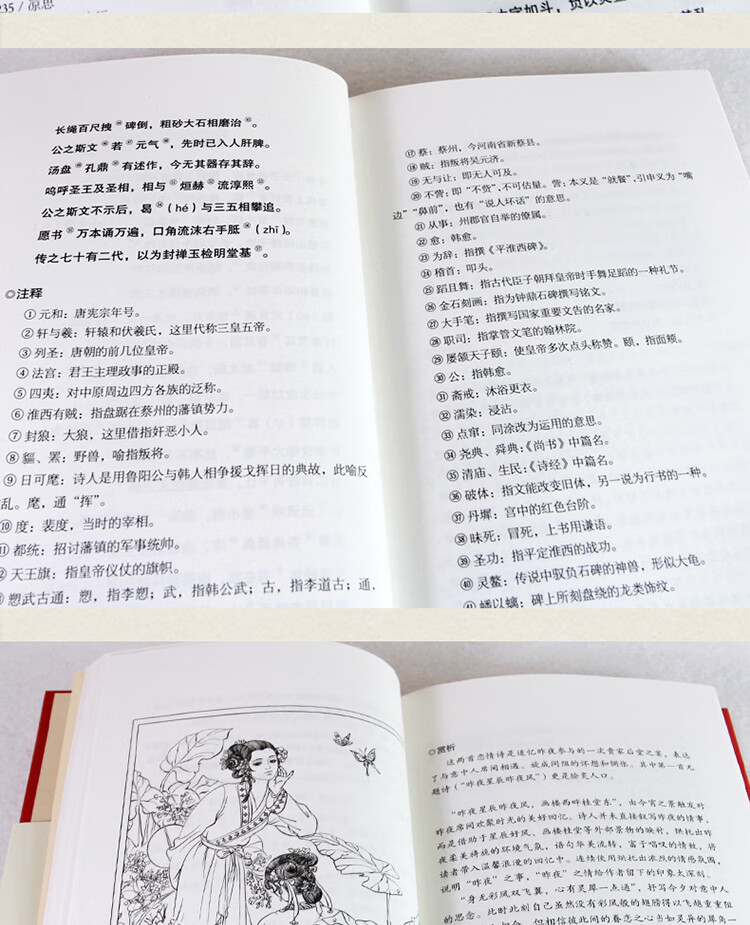 235 / 凉思
长绳百尺拽㊹碑倒，粗砂大石相磨治㊺。
公之斯文㊻若㊼元气㊽，先时已入人肝脾。
汤盘㊾孔鼎㊿有述作，今无其器存其辞。
呜呼圣王及圣相，相与 烜赫 流淳熙 。
公之斯文不示后，曷 （hé）与三五相攀追。
愿书 万本诵万遍，口角流沫右手胝 （zhī）。
传之七十有二代，以为封禅玉检明堂基 。
◎注释
①元和：唐宪宗年号。
②轩与羲：轩辕和伏羲氏，这里代称三皇五帝。
③列圣：唐朝的前几位皇帝。
④法宫：君王主理政事的正殿。
⑤四夷：对中原周边四方各族的泛称。
⑥淮西有贼：指盘踞在蔡州的藩镇势力。
⑦封狼：大狼，这里借指奸恶小人。
⑧貙、罴：野兽，喻指叛将。
⑨日可麾：诗人是用鲁阳公与韩人相争援戈挥日的典故，此喻反
乱。麾，通“挥”。
⑩度：裴度，当时的宰相。
⑪都统：招讨藩镇的军事统帅。
⑫天王旗：指皇帝仪仗的旗帜。
⑬愬武古通：愬，指李愬；武，指韩公武；古，指李道古；通，
⑰蔡：蔡州，今河南省新蔡县。
⑱贼：指叛将吴元济。
⑲无与让：即无人可及。
⑳不訾：即“不赀”，不可估量。訾：本义是“就餐”，引申义为“嘴
边”“鼻前”，也有“说人坏话”的意思。
㉑从事：州郡官自举的僚属。
㉒愈：韩愈。
㉓为辞：指撰《平淮西碑》。
㉔稽首：叩头。
㉕蹈且舞：指古代臣子朝拜皇帝时手舞足蹈的一种礼节。
㉖金石刻画：指为钟鼎石碑撰写铭文。
㉗大手笔：指撰写国家重要文告的名家。
㉘职司：指掌管文笔的翰林院。
㉙屡颔天子颐：使皇帝多次点头称赞。颐，指面颊。
㉚公：指韩愈。
㉛斋戒：沐浴更衣。
㉜濡染：浸沾。
㉝点窜：同涂改为运用的意思。
㉞尧典、舜典：《尚书》中篇名。
㉟清庙、生民：《诗经》中篇名。
㊱破体：指文能改变旧体，另一说为行书的一种。
㊲丹墀：宫中的红色台阶。
㊳昧死：冒死，上书用谦语。
㊴圣功：指平定淮西的战功。
㊵灵鳌：传说中驮负石碑的神兽，形似大龟。
㊶蟠以螭：碑上所刻盘绕的龙类饰纹。
◎赏析
这两首恋情诗是追忆昨夜参与的一次贵家后堂之宴，表达
了与意中人席间相遇、旋成间阻的怀想和惆怅。其中第一首无
题诗（“昨夜星辰昨夜风”）更是脍炙人口。
“昨夜星辰昨夜风，画楼西畔桂堂东”，由今宵之景触发对
昨夜席间欢聚时光的美好回忆。诗人并未直接叙写昨夜的情事，
而是借助于星辰好风、画楼桂堂等外部景物的映衬，烘托出昨
夜柔美旖旎的环境气氛，语句华美流转，富于唱叹的情致，将
读者带入温馨浪漫的回忆中。连续使用烘托出浓烈的情感氛围，
说明“昨夜”之事，“昨夜”之情给作者留下的印象太深刻。
“身无彩凤双飞翼，心有灵犀一点通”，抒写今夕对意中人
的思念。此时此刻自己虽然没有彩凤般的翅膀得以飞越重重阻